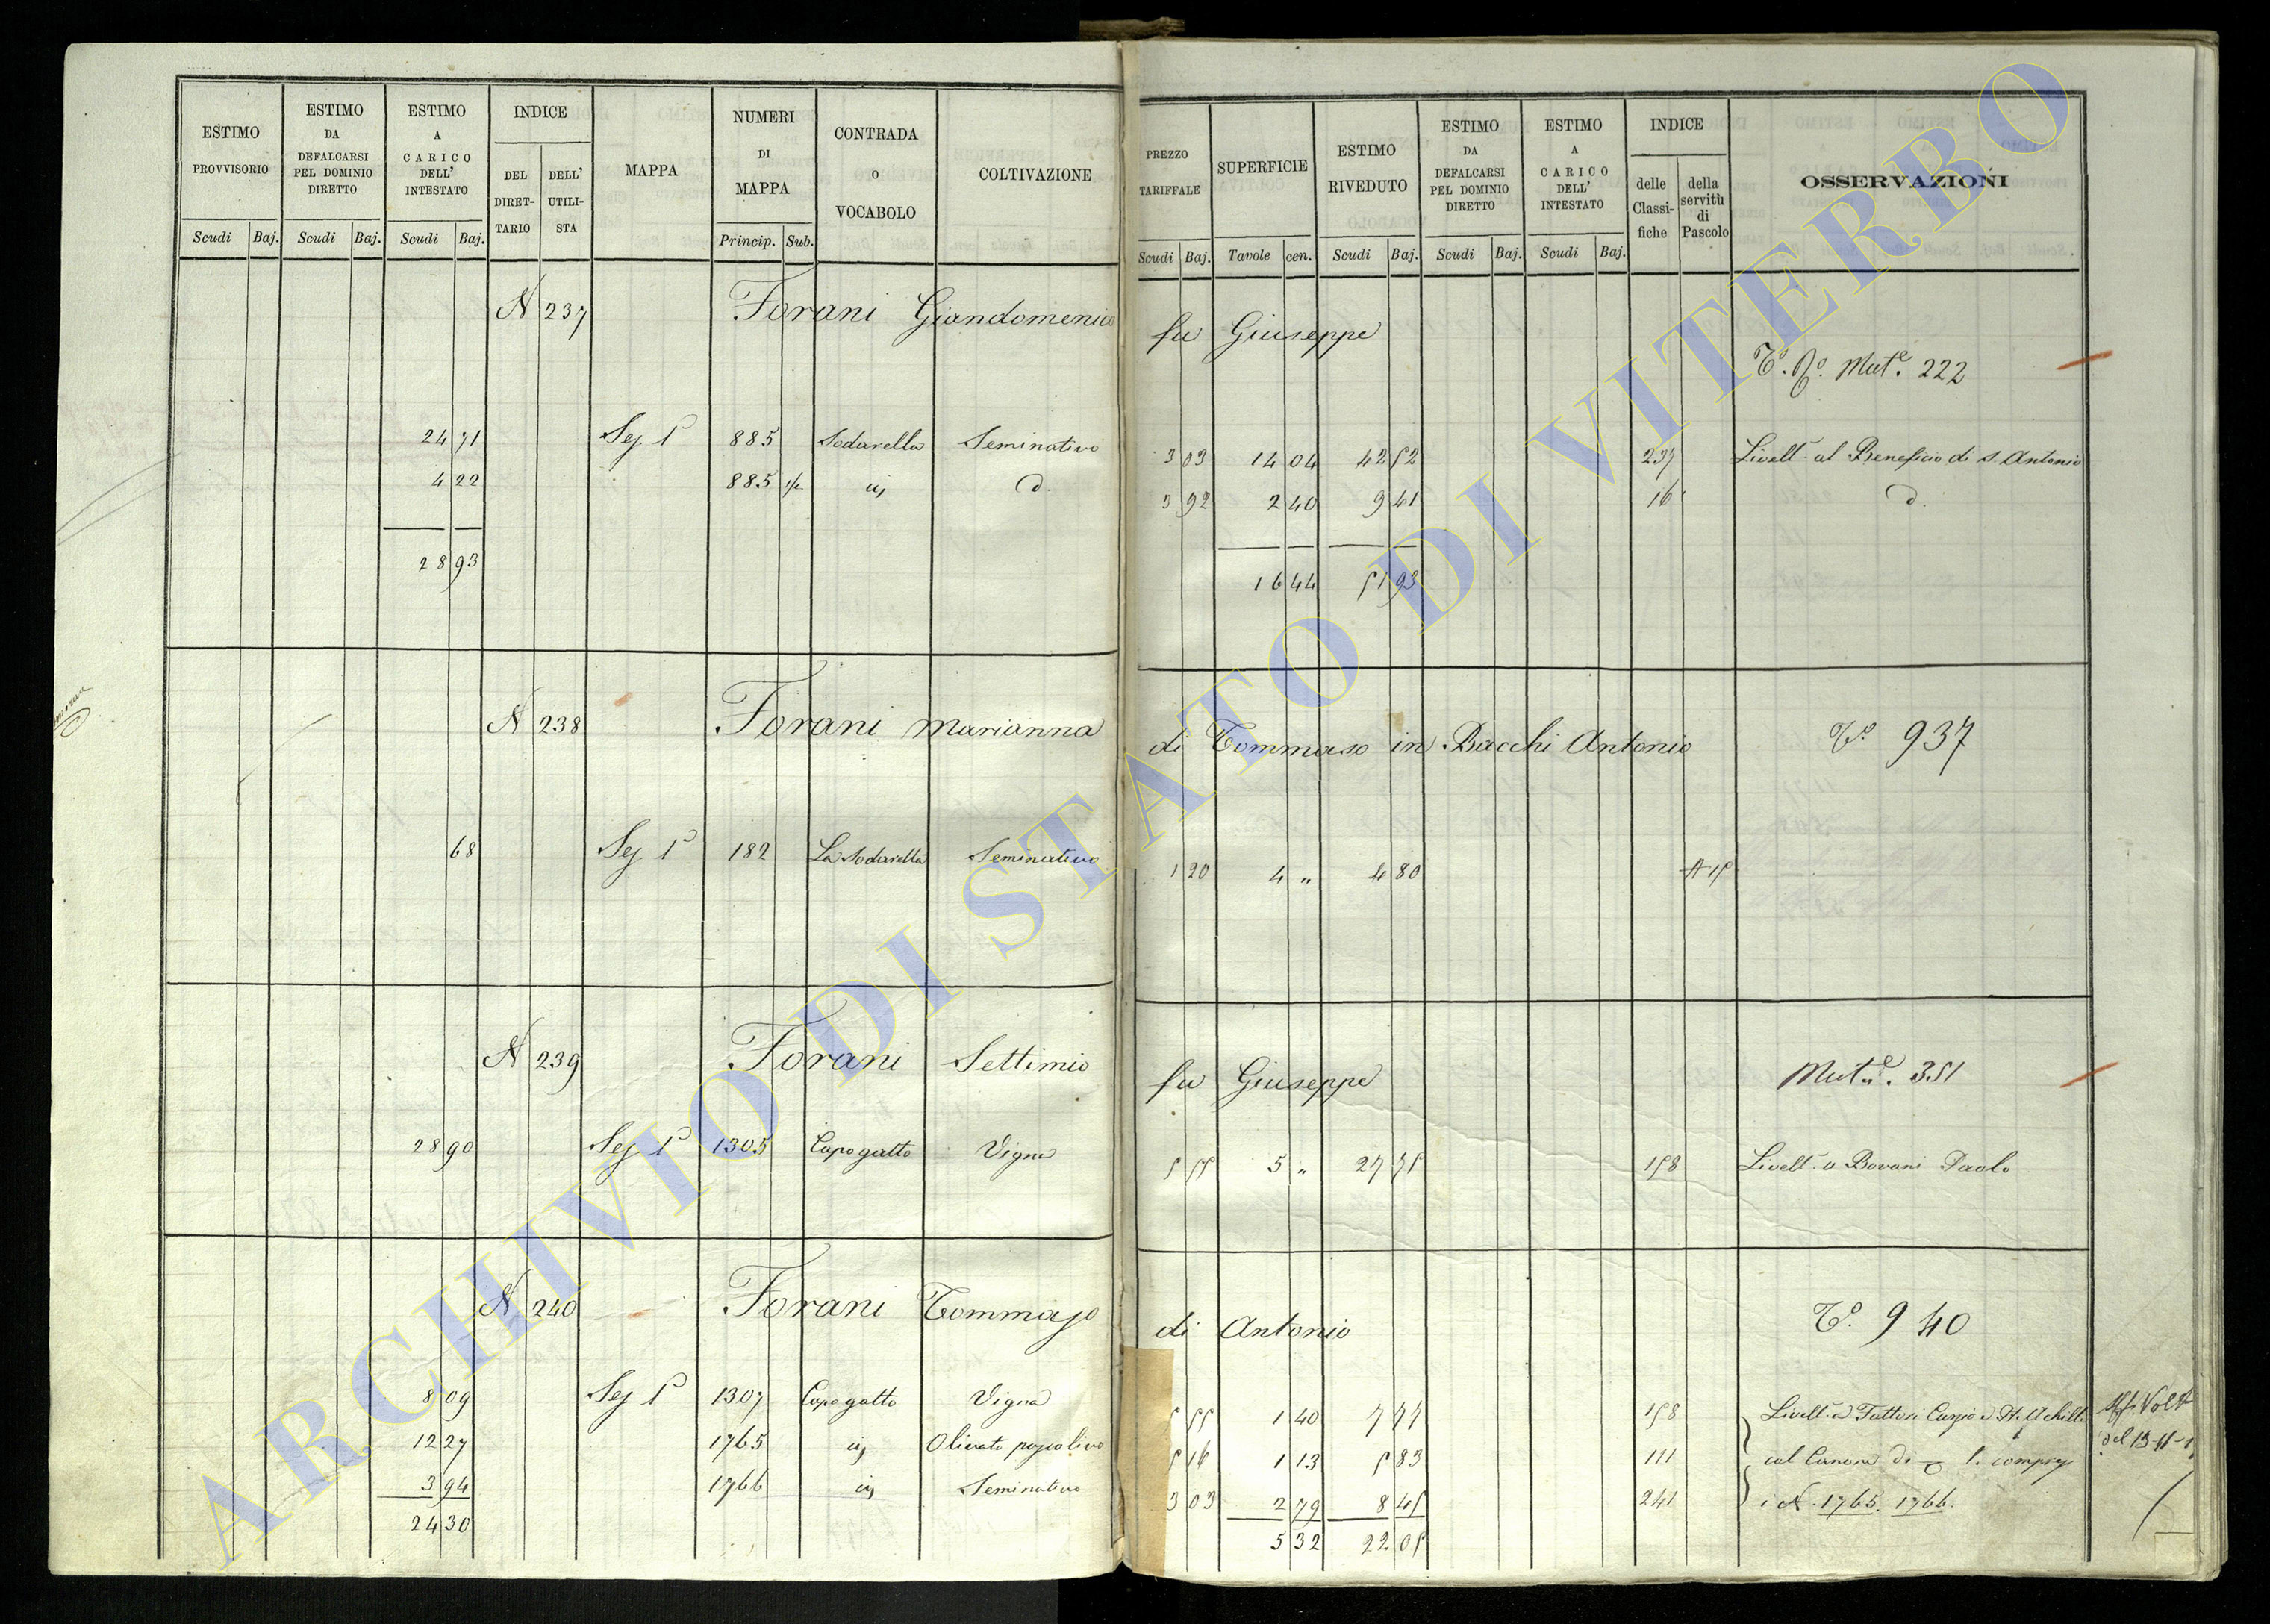 ESTIMO PROVVISORIO
ESTIMO DA DEFALCARSI PEL DOMINIO DIRETTO
ESTIMO A CARICO DELL' INTESTATO
INDICE
DEL DIRET-TARIO
DELL' UTILI-STA
MAPPA
NUMERI DI MAPPA
CONTRADA O VOCABOLO
COLTIVAZIONE
Scudi Baj. Scudi Baj. Scudi Baj. Princip. Sub.
PREZZO TARIFFALE
SUPERFICIE
ESTIMO RIVEDUTO
ESTIMO DA DEFALCARSI PEL DOMINIO DIRETTO
ESTIMO A CARICO DELL' INTESTATO
INDICE
delle Classi-fiche
della servitù di Pascolo
OSSERVAZIONI
Scudi Baj. Tavole cen. Scudi Baj. Scudi Baj. Scudi Baj.
N 237 Forani Giandomenico fu Giuseppe
Mut.e 222
24 71 Sez. 1a 885 Sodarella Seminativo 3 03 14 04 42 52 237 Livell. al Beneficio di S. Antonio
4 22 885 1/2 id. d. 3 92 2 40 9 41 16 d.
28 93 16 44 51 93
N 238 Forani Marianna di Tommaso in Bacchi Antonio To 937
68 Sez. 1a 182 La Sodarella Seminativo 1 20 4 " 4 80 A 15
N 239 Forani Settimio fu Giuseppe Mut.e 351
28 90 Sez. 1a 1305 Capogatto Vigna 5 55 5 " 27 75 158 Livell. a Bovani Paolo
N 240 Forani Tommaso di Antonio To. 940
8 09 Sez. 1a 1307 Capogatto Vigna 5 55 1 40 7 77 158 Livell. a
12 27 1765 id. Olivato 5 16 1 13 5 83 111 col Canone di
3 94 1766 id. Seminativo 3 03 2 79 8 45 241 i N. 1765. 1766.
24 30 5 32 22 05
ARCHIVIO DI STATO DI VITERBO